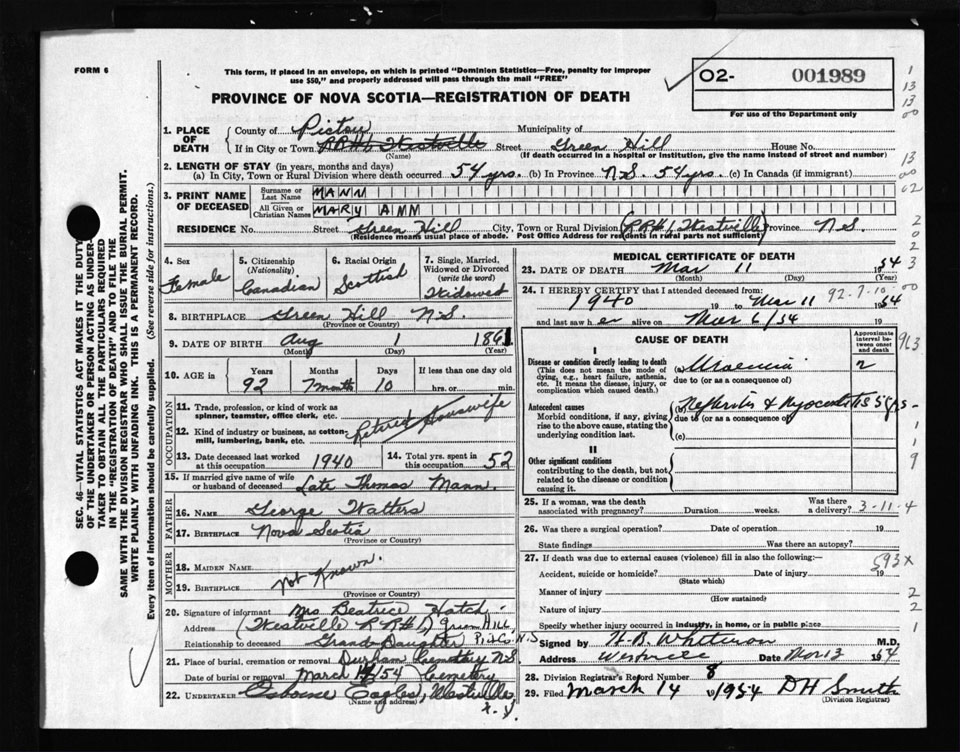 FORM 6
This form, if placed in an envelope, on which is printed "Dominion Statistics—Free, penalty for improper
use $50," and properly addressed will pass through the mail "FREE"
O2- 001989
For use of the Department only
PROVINCE OF NOVA SCOTIA—REGISTRATION OF DEATH
1. PLACE OF DEATH
County of Pictou Municipality of
If in City or Town R.R.#1 Westville Street Green Hill House No.
(Name) (If death occurred in a hospital or institution, give the name instead of street and number)
2. LENGTH OF STAY (in years, months and days)
(a) In City, Town or Rural Division where death occurred 54 yrs. (b) In Province N.S. 54 yrs. (c) In Canada (if immigrant)
3. PRINT NAME OF DECEASED
Surname or Last Name MANN
All Given or Christian Names MARY ANN
RESIDENCE No. Street Green Hill City, Town or Rural Division (R.R.#1, Westville) Province N.S.
(Residence means usual place of abode. Post Office Address for residents in rural parts not sufficient)
4. Sex Female
5. Citizenship (Nationality) Canadian
6. Racial Origin Scottish
7. Single, Married, Widowed or Divorced (write the word) Widowed
8. BIRTHPLACE Green Hill N.S.
(Province or Country)
9. DATE OF BIRTH Aug 1 1861
(Month) (Day) (Year)
10. AGE in Years 92 Months 7 month Days 10 If less than one day old hrs. or min.
OCCUPATION
11. Trade, profession, or kind of work as spinner, teamster, office clerk, etc.
12. Kind of industry or business, as cotton-mill, lumbering, bank, etc.
Retired Housewife
13. Date deceased last worked at this occupation 1940
14. Total yrs. spent in this occupation 52
15. If married give name of wife or husband of deceased Late Thomas Mann.
FATHER
16. NAME George Watters
17. BIRTHPLACE Nova Scotia
(Province or Country)
MOTHER
18. MAIDEN NAME
19. BIRTHPLACE
Not Known.
(Province or Country)
20. Signature of informant Mrs Beatrice Hatch
Address (Westville R.R.#1) Green Hill,
Relationship to deceased Grand Daughter Pict Co. N.S
21. Place of burial, cremation or removal Durham Cemetery N.S
Date of burial or removal March /54 Cemetery
22. UNDERTAKER Osborne Eagles, Westville,
(Name and address)
MEDICAL CERTIFICATE OF DEATH
23. DATE OF DEATH Mar 11 1954
(Month) (Day) (Year)
24. I HEREBY CERTIFY that I attended deceased from: 92-7-10
1940 19 to Mar 11 1954
and last saw her alive on Mar 6/54
CAUSE OF DEATH
Approximate interval between onset and death
I
Disease or condition directly leading to death
(This does not mean the mode of dying, e.g., heart failure, asthenia, etc. It means the disease, injury, or complication which caused death.)
(a) Uraemia 2
due to (or as a consequence of)
Antecedent causes
Morbid conditions, if any, giving rise to the above cause, stating the underlying condition last.
(b) Nephritis & Myocarditis 5 yrs
due to (or as a consequence of)
(c)
II
Other significant conditions
contributing to the death, but not related to the disease or condition causing it.
25. If a woman, was the death associated with pregnancy? Duration weeks. Was there a delivery? 3-11-4
26. Was there a surgical operation? Date of operation 19
State findings Was there an autopsy?
27. If death was due to external causes (violence) fill in also the following:—
593x
Accident, suicide or homicide? Date of injury 19
(State which)
Manner of injury
(How sustained)
Nature of injury
Specify whether injury occurred in industry, in home, or in public place
Signed by M.D.
Address Westville Date Mar 13 1954
28. Division Registrar's Record Number 8
29. Filed March 14 1954 D H Smith
(Division Registrar)
SEC. 46—VITAL STATISTICS ACT MAKES IT THE DUTY
OF THE UNDERTAKER OR PERSON ACTING AS UNDER-
TAKER TO OBTAIN ALL THE PARTICULARS REQUIRED
IN THE "REGISTRATION OF DEATH" AND TO FILE THE
SAME WITH THE DIVISION REGISTRAR WHO SHALL ISSUE THE BURIAL PERMIT.
WRITE PLAINLY WITH UNFADING INK. THIS IS A PERMANENT RECORD.
Every item of information should be carefully supplied. (See reverse side for instructions.)
1
13
13
00
13
00
02
2
02
02
3
00
963
1
1
9
2
2
1